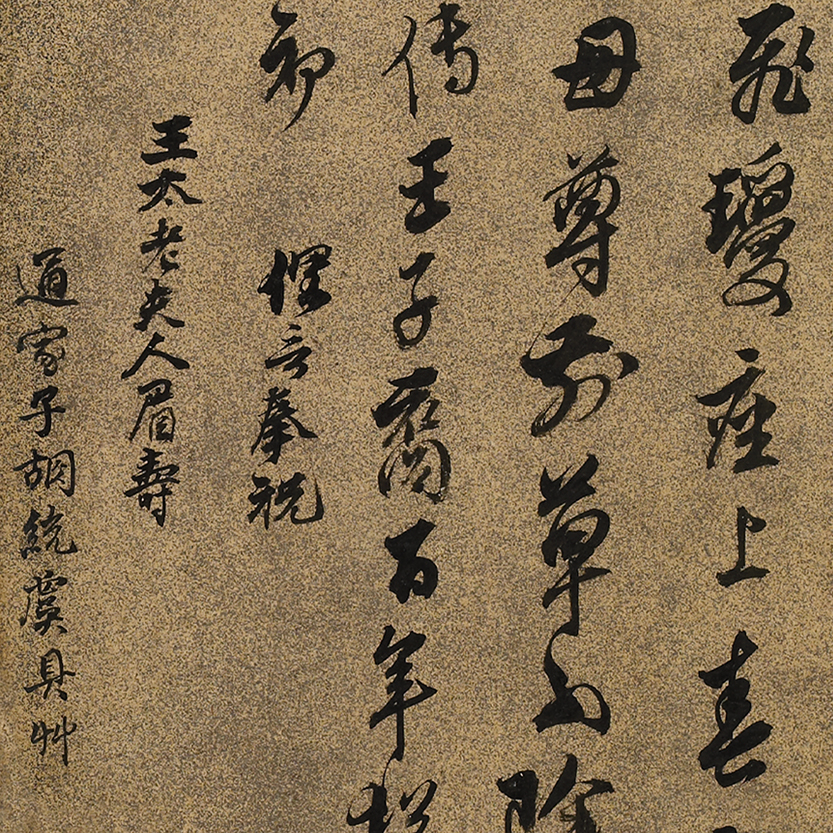 飛瓊座上春
母尊前草不除
傳王子喬百年
初
俚言奉祝
王太老夫人眉壽
通家子胡統虞具艸